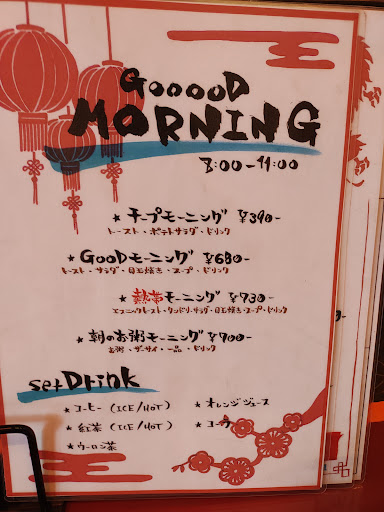 GooooD
MORNING
8:00-11:00
★ チープモーニング ¥390-
トースト・ポテトサラダ・ドリンク
★ GooDモーニング ¥680-
トースト・サラダ・目玉焼き・スープ・ドリンク
★ 熱帯モーニング ¥730-
エスニックトースト・タンドリーサラダ・目玉焼き・スープ・ドリンク
★ 朝のお粥モーニング ¥700-
お粥・ザーサイ・一品・ドリンク
set Drink
★ コーヒー (ICE/HOT)
★ 紅茶 (ICE/HOT)
★ ウーロン茶
★ オレンジジュース
★ コーラ